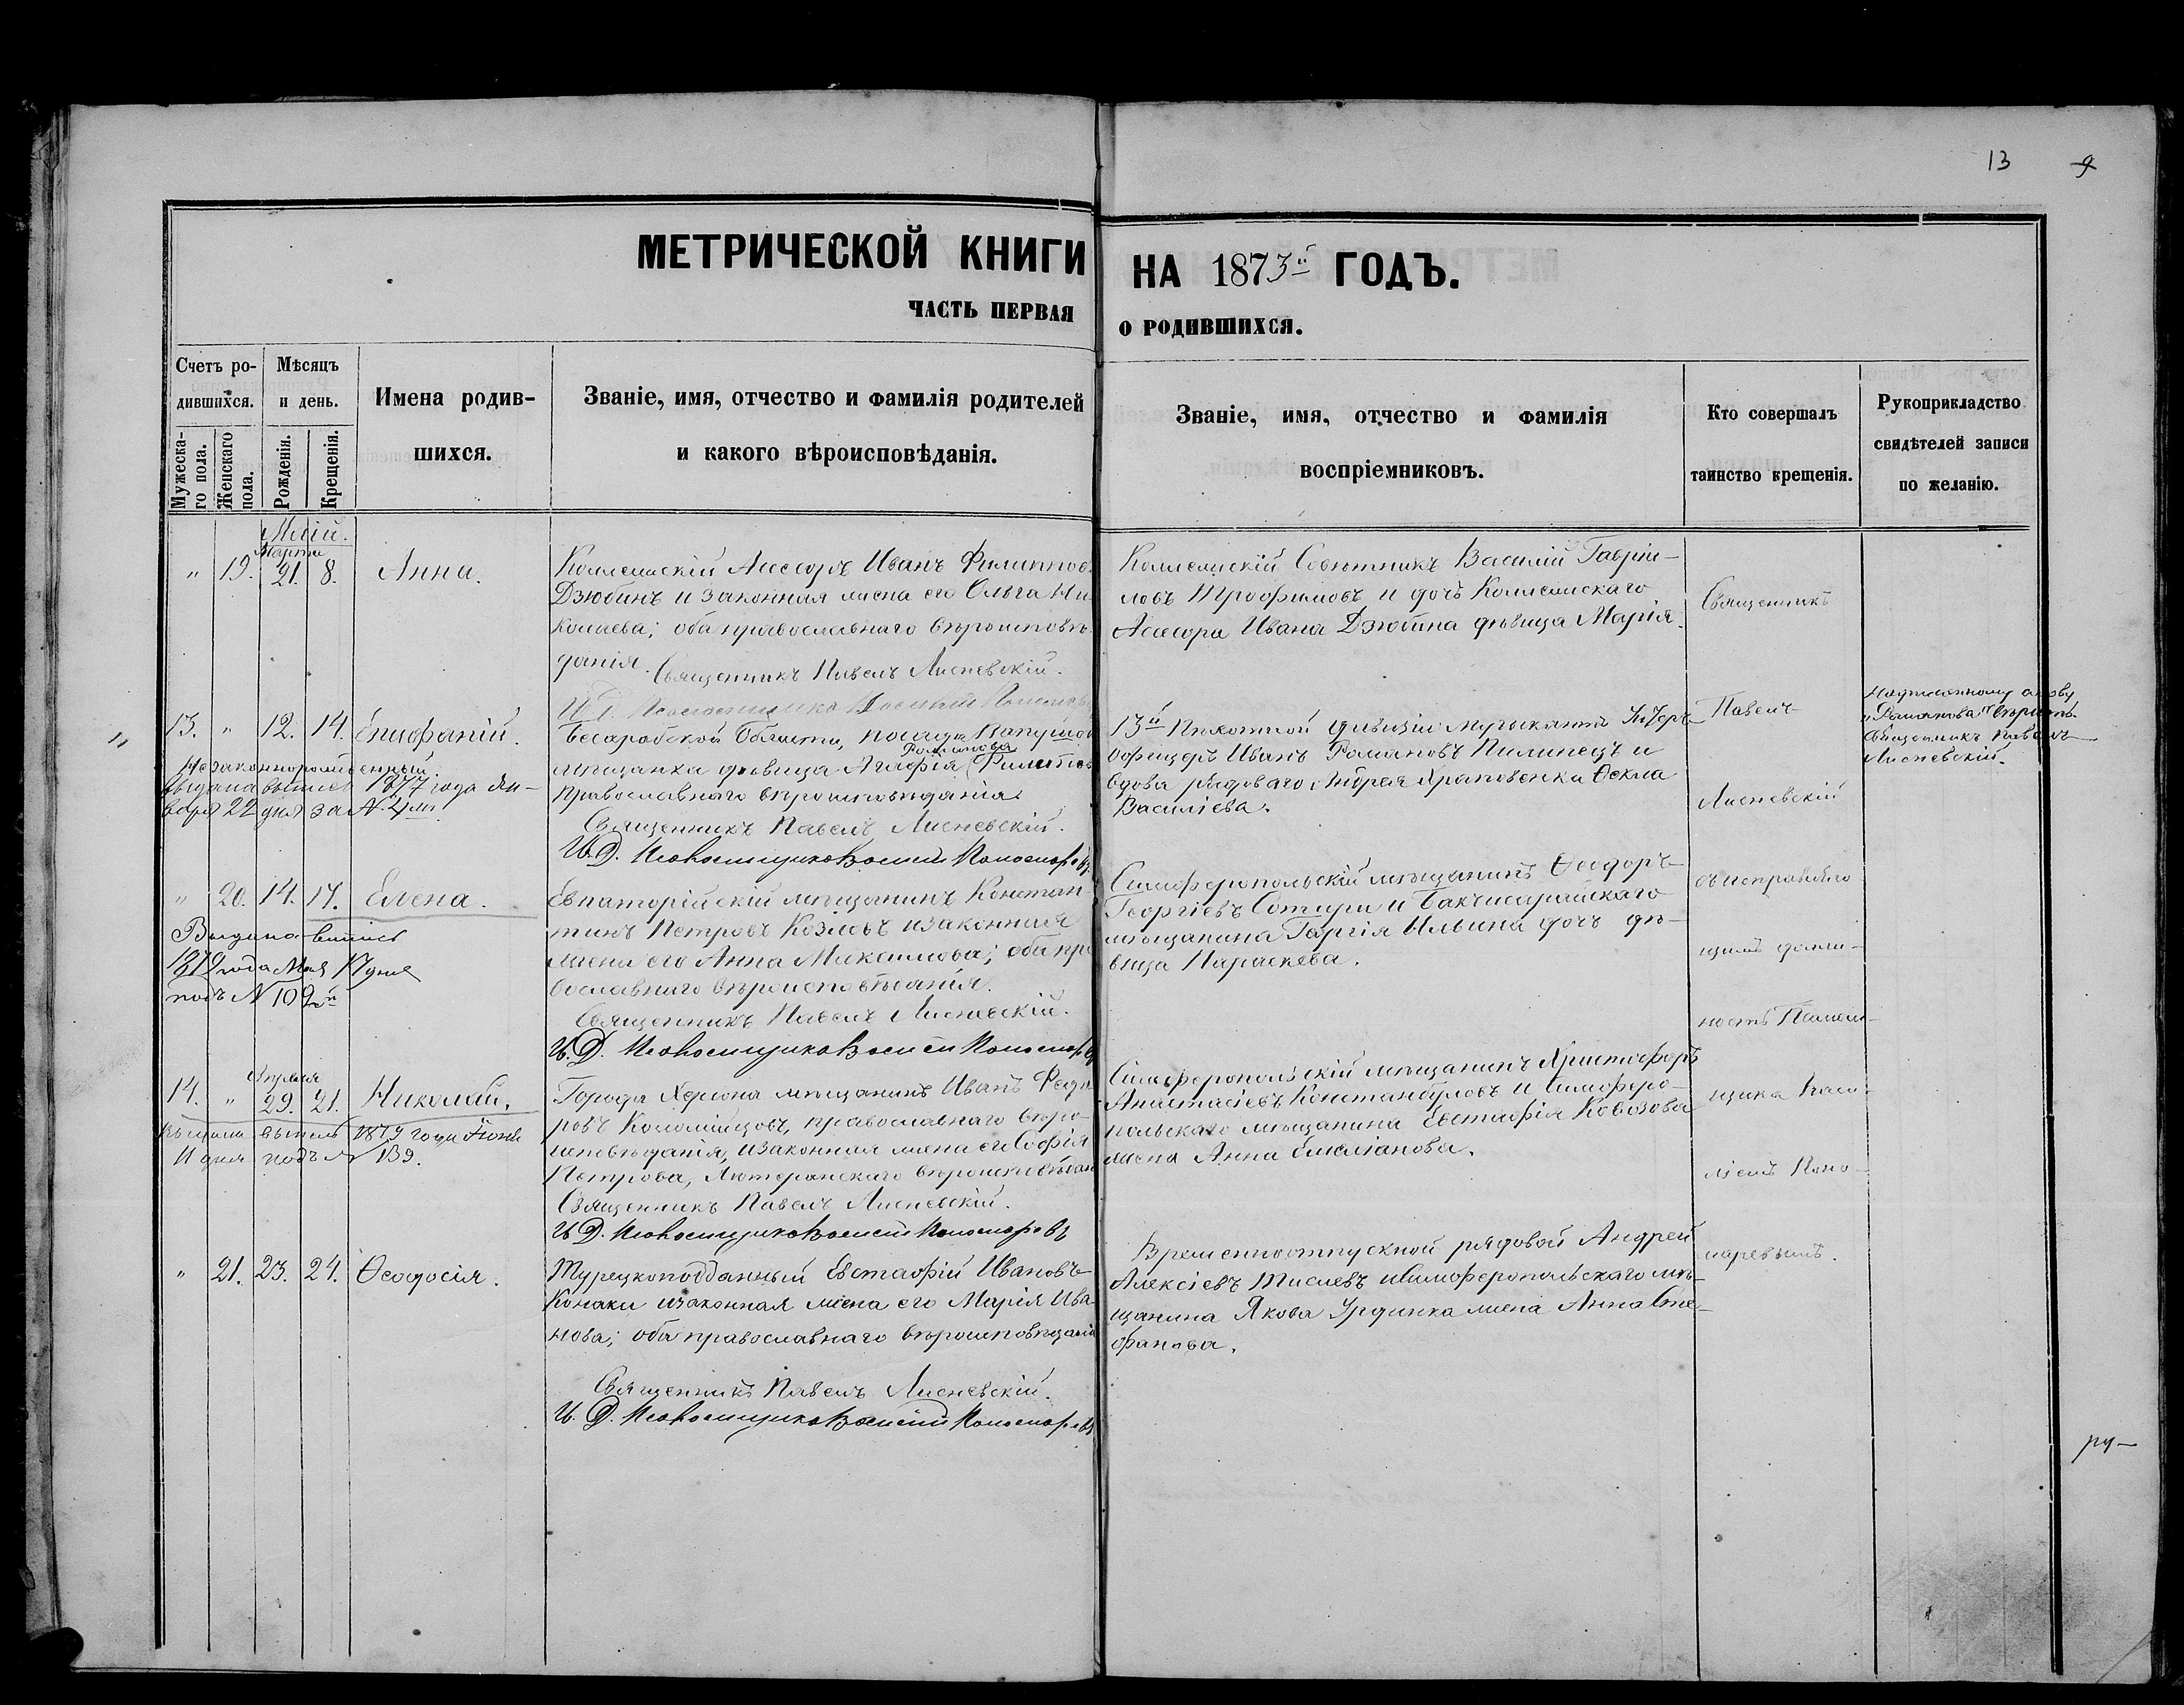 13 9
МЕТРИЧЕСКОЙ КНИГИ НА 1873й ГОДЪ.
ЧАСТЬ ПЕРВАЯ О РОДИВШИХСЯ.
Счетъ ро-
дившихся.
Мужеска-
го пола.
Женскаго
пола.
Мѣсяцъ
и день.
Рожденія.
Крещенія.
Имена родив-
шихся.
Званіе, имя, отчество и фамилія родителей
и какого вѣроисповѣданія.
Званіе, имя, отчество и фамилія
воспріемниковъ.
Кто совершалъ
таинство крещенія.
Рукоприкладство
свидѣтелей записи
по желанію.
Май.
Марта
" 19. 21. 8. Анна.
Коллежскій Ассесоръ Иванъ Филиппов
Дзюбинъ и законная жена его Ольга Ни
колаева; оба православнаго вѣроисповѣ
данія.
Священникъ Павелъ Лисневскій.
Коллежскій Совѣтникъ Василій Гаврии-
ловъ Трофимовъ и дочь Коллежскаго
Асесора Ивана Дзюбина дѣвица Марія.
13. " 12. 14. Епифаній.
Незаконнорожденный.
Выдана выпись 1877 года Ян-
варя 22 дня за №
Бесарабской Области, посада
Романова
мѣщанка дѣвица Агафія (Филипов
православнаго вѣроисповѣданія.
Священникъ Павелъ Лисневскій.
И. Д. Псаломщика Василій Пономаревъ
13й Пѣхотной дивизіи музыкантъ Унтеръ
офицеръ Иванъ Романовъ Пилипецъ и
вдова рядоваго Андрея Храповенка Ѳекла
Василіева.
Надписанному слову
"Романова" вѣрить.
Священникъ Павелъ
Лисневскій.
" 20. 14. 17. Елена.
Выдана выпись
1879 года Мая 17 дня
подъ № 102й
Евпаторійскій мѣщанинъ Констан
тинъ Петровъ Козловъ и законная
жена его Анна Максимова; оба пра
вославнаго вѣроисповѣданія.
Священникъ Павелъ Лисневскій.
И. Д. Псаломщика Василій Пономаревъ
Симферопольскій мѣщанинъ Ѳеодоръ
Георгіевъ Сотири и Бакчисарайскаго
мѣщанина Георгія Ильина дочь дѣ-
вица Параскева.
Апрѣля
14. " 29. 21. Николай.
Выдана выпись 1879 года Іюня
11 дня подъ № 139.
Города Херсона мѣщанинъ Иванъ Федо
ровъ Коломійцовъ, православнаго вѣро-
исповѣданія, и законная жена его Софія
Петрова, Лютеранскаго вѣроисповѣдан
Священникъ Павелъ Лисневскій.
И. Д. Псаломщика Василій Пономаревъ
Симферопольскій мѣщанинъ Христофоръ
Анастасіевъ Константуловъ и Симферо-
польскаго мѣщанина Евстафія Ковозова
жена Анна Емеліанова.
" 21. 23. 24. Ѳеодосія.
Турецкоподданный Евстафій Ивановъ
Конаки и законная жена его Марія Ива-
нова; оба православнаго вѣроисповѣданія
Священникъ Павелъ Лисневскій.
И. Д. Псаломщика Василій Пономаревъ
Временноотпускной рядовой Андрей
Алексіевъ Тисаевъ и Симферопольскаго мѣ-
щанина Якова Урдинка жена Анна Сте-
фанова.
Священникъ
Павелъ
Лисневскій
съ исправляю
щимъ долж-
ность Псалом-
щика Васи-
ліемъ Поно-
маревымъ.
ру-